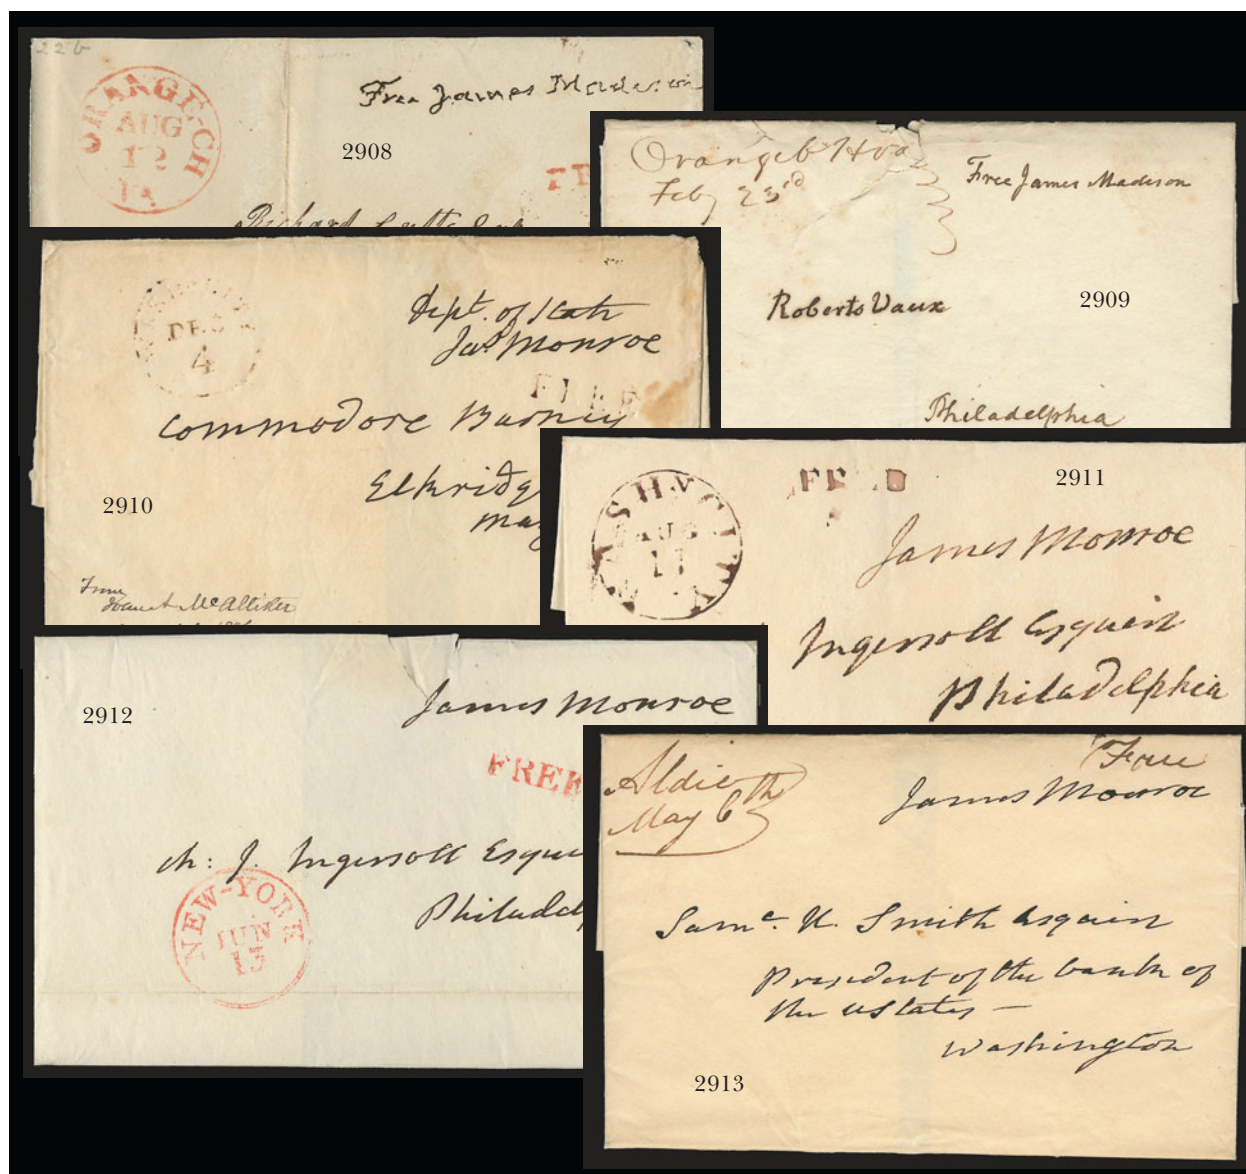 226
ORANGE-CH
AUG
12
Va.
Free James Madison
2908
FR
Richard Cutts Esq
Orangeb
Feby 23rd
Free James Madison
Roberts Vaux
2909
Philadelphia
DEC
4
Dept. of State
Jas Monroe
FREE
Commodore Barney
Elkridg
Ma
2910
From
McAllister
WASHN. CITY
AUG
FREE
2911
James Monroe
Ingersoll Esquire
Philadelphia
2912
James Monroe
FREE
Ch: J. Ingersoll Esqui
Philadel
NEW-YORK
JUN
13
Aldie
May 6th
Free
James Monroe
Saml. H. Smith Esquire
President of the bank of
the UStates —
Washington
2913